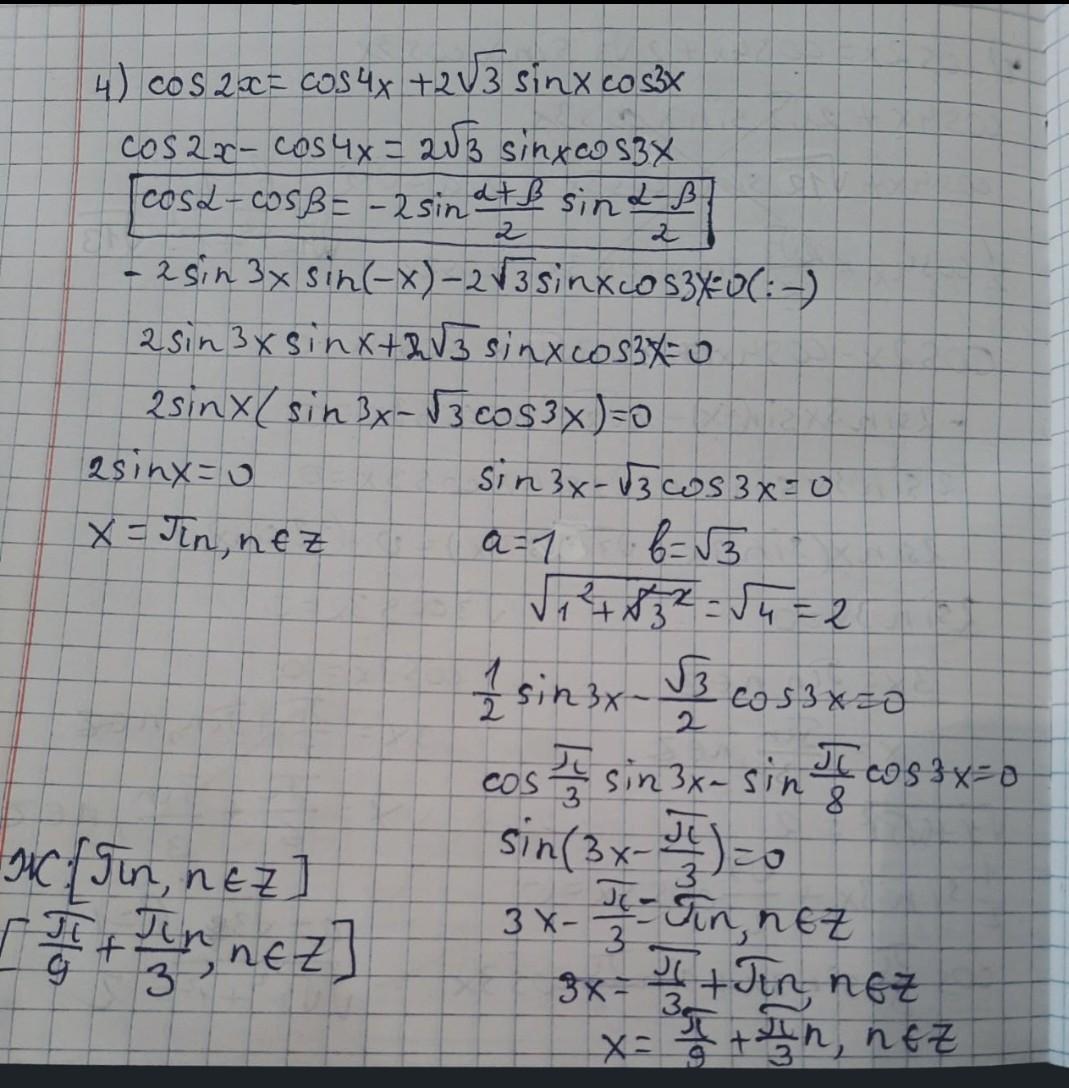 4) cos2x = cos4x + 2√3 sinx cos3x
cos2x - cos4x = 2√3 sinxcos3x
cosα - cosβ = -2sin (α+β)/2 sin (α-β)/2
- 2sin3x sin(-x) - 2√3 sinxcos3x=0 (: -)
2sin3x sinx + 2√3 sinxcos3x=0
2sinx( sin3x - √3 cos3x)=0
2sinx = 0
x = πn, n∈z
sin3x - √3 cos3x = 0
a=1 b=√3
√(1² + √3²) = √4 = 2
1/2 sin3x - √3/2 cos3x=0
cos π/3 sin3x - sin π/8 cos3x=0
sin(3x - π/3) = 0
3x - π/3 = πn, n∈z
3x = π/3 + πn, n∈z
x = π/9 + π/3 n, n∈z
Ж: [πn, n∈z]
[π/9 + πn/3, n∈z]